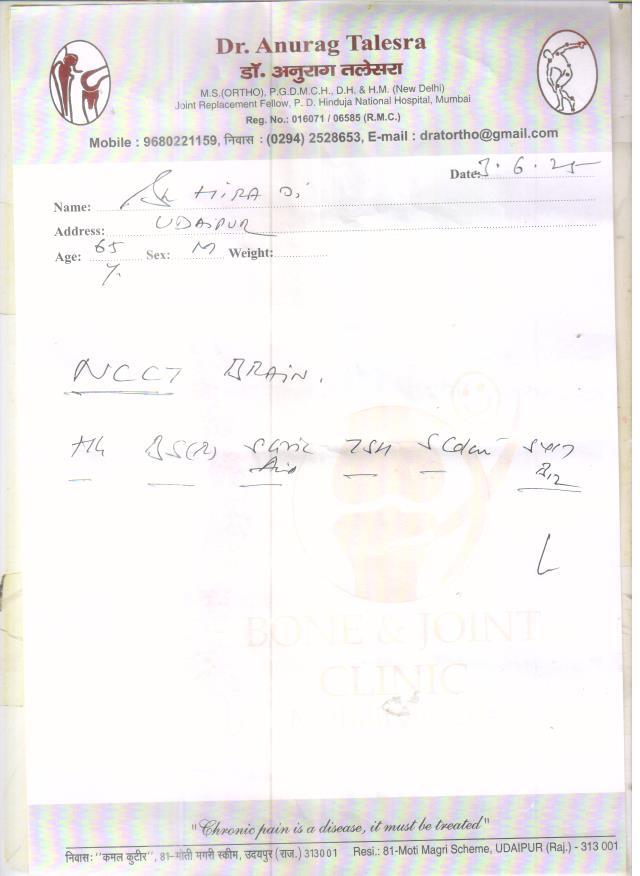 Dr. Anurag Talesra
डॉ. अनुराग तलेसरा
M.S.(ORTHO), P.G.D.M.C.H., D.H. & H.M. (New Delhi)
Joint Replacement Fellow, P. D. Hinduja National Hospital, Mumbai
Reg. No.: 016071 / 06585 (R.M.C.)
Mobile : 9680221159, निवास : (0294) 2528653, E-mail : dratortho@gmail.com
Date: 3.6.25
Name: HIRA
Address: UDAIPUR
Age: 65 Sex: M Weight:
NCCT BRAIN.
BS(R) TSH
B12
BONE & JOINT
CLINIC
"Chronic pain is a disease, it must be treated"
निवास: "कमल कुटीर", 81-मोती मगरी स्कीम, उदयपुर (राज.) 313001 Resi.: 81-Moti Magri Scheme, UDAIPUR (Raj.) - 313 001